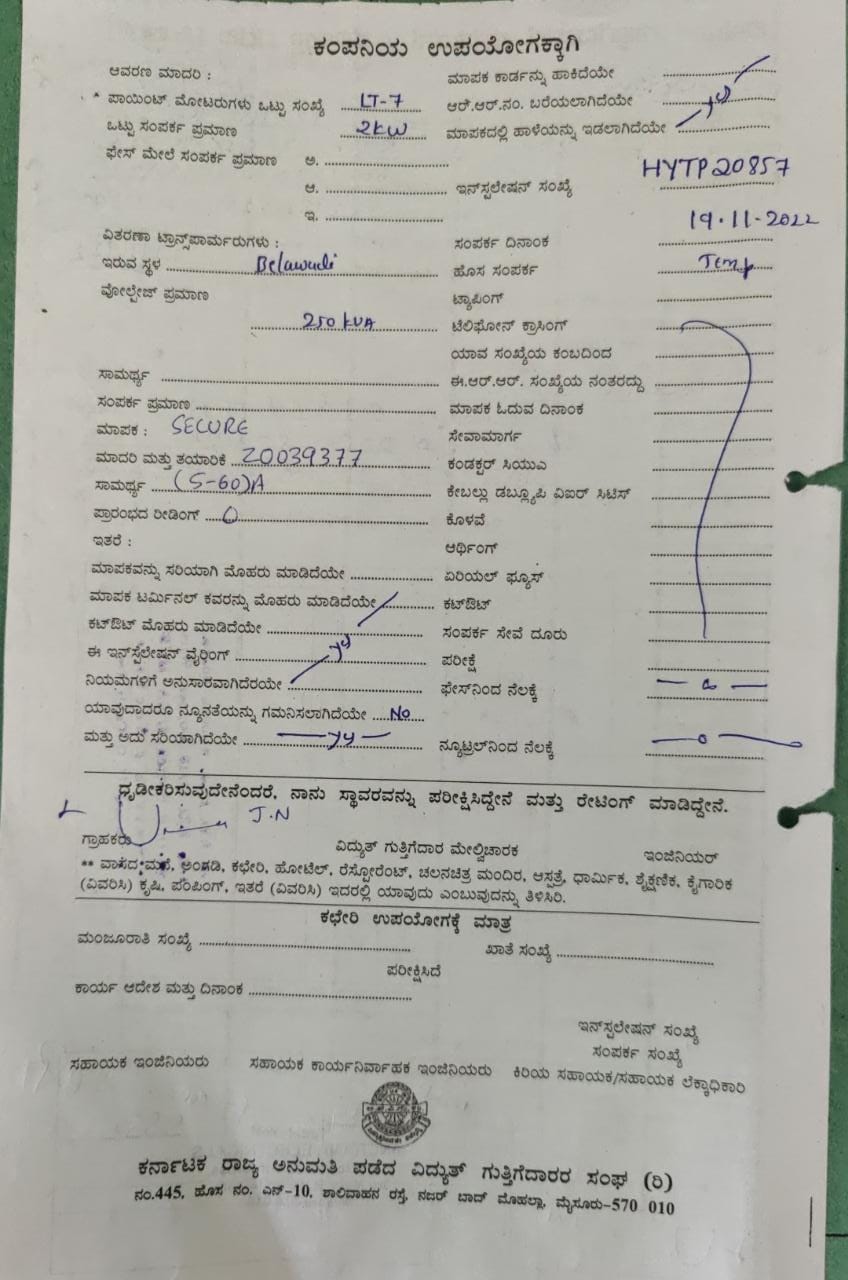 ಕಂಪನಿಯ ಉಪಯೋಗಕ್ಕಾಗಿ
ಆವರಣ ಮಾದರಿ : ಮಾಪಕ ಕಾರ್ಡನ್ನು ಹಾಕಿದೆಯೇ
* ಪಾಯಿಂಟ್ ಮೋಟರುಗಳು ಒಟ್ಟು ಸಂಖ್ಯೆ LT-7 ಆರ್.ಆರ್.ನಂ. ಬರೆಯಲಾಗಿದೆಯೇ
ಒಟ್ಟು ಸಂಪರ್ಕ ಪ್ರಮಾಣ 2KW ಮಾಪಕದಲ್ಲಿ ಹಾಳೆಯನ್ನು ಇಡಲಾಗಿದೆಯೇ
ಫೇಸ್ ಮೇಲೆ ಸಂಪರ್ಕ ಪ್ರಮಾಣ ಅ.
ಆ. ಇನ್‌ಸ್ಪಲೇಷನ್ ಸಂಖ್ಯೆ HYTP20857
ಇ.
ವಿತರಣಾ ಟ್ರಾನ್ಸ್‌ಪಾರ್ಮರುಗಳು : ಸಂಪರ್ಕ ದಿನಾಂಕ 19.11-2022
ಇರುವ ಸ್ಥಳ Belawadi ಹೊಸ ಸಂಪರ್ಕ Temp
ವೋಲ್ಟೇಜ್ ಪ್ರಮಾಣ ಟ್ಯಾಪಿಂಗ್
250 KVA ಟೆಲಿಫೋನ್ ಕ್ರಾಸಿಂಗ್
ಯಾವ ಸಂಖ್ಯೆಯ ಕಂಬದಿಂದ
ಸಾಮರ್ಥ್ಯ ಈ.ಆರ್.ಆರ್. ಸಂಖ್ಯೆಯ ನಂತರದ್ದು
ಸಂಪರ್ಕ ಪ್ರಮಾಣ ಮಾಪಕ ಓದುವ ದಿನಾಂಕ
ಮಾಪಕ : SECURE ಸೇವಾಮಾರ್ಗ
ಮಾದರಿ ಮತ್ತು ತಯಾರಿಕೆ 20039377 ಕಂಡಕ್ಟರ್ ಸಿಯುಎ
ಸಾಮರ್ಥ್ಯ (5-60)A ಕೇಬಲ್ಲು ಡಬ್ಲ್ಯೂಪಿ ವಿಐರ್ ಸಿಟಿಸ್
ಪ್ರಾರಂಭದ ರೀಡಿಂಗ್ 0 ಕೊಳವೆ
ಇತರೆ : ಆರ್ಥಿಂಗ್
ಮಾಪಕವನ್ನು ಸರಿಯಾಗಿ ಮೊಹರು ಮಾಡಿದೆಯೇ ಏರಿಯಲ್ ಫ್ಯೂಸ್
ಮಾಪಕ ಟರ್ಮಿನಲ್ ಕವರನ್ನು ಮೊಹರು ಮಾಡಿದೆಯೇ ಕಟ್‌ಔಟ್
ಕಟ್‌ಔಟ್ ಮೊಹರು ಮಾಡಿದೆಯೇ ಸಂಪರ್ಕ ಸೇವೆ ದೂರು
ಈ ಇನ್‌ಸ್ಪಲೇಷನ್ ವೈರಿಂಗ್ ಪರೀಕ್ಷೆ
ನಿಯಮಗಳಿಗೆ ಅನುಸಾರವಾಗಿದೆರಯೇ ಫೇಸ್‌ನಿಂದ ನೆಲಕ್ಕೆ — 0 —
ಯಾವುದಾದರೂ ನ್ಯೂನತೆಯನ್ನು ಗಮನಿಸಲಾಗಿದೆಯೇ No
ಮತ್ತು ಅದು ಸರಿಯಾಗಿದೆಯೇ ನ್ಯೂಟ್ರಲ್‌ನಿಂದ ನೆಲಕ್ಕೆ — 0 —
ಧೃಡೀಕರಿಸುವುದೇನೆಂದರೆ, ನಾನು ಸ್ಥಾವರವನ್ನು ಪರೀಕ್ಷಿಸಿದ್ದೇನೆ ಮತ್ತು ರೇಟಿಂಗ್ ಮಾಡಿದ್ದೇನೆ.
J.N
ಗ್ರಾಹಕರು ವಿದ್ಯುತ್ ಗುತ್ತಿಗೆದಾರ ಮೇಲ್ವಿಚಾರಕ ಇಂಜಿನಿಯರ್
** ವಾಸದ ಮನೆ, ಅಂಗಡಿ, ಕಛೇರಿ, ಹೋಟೆಲ್, ರೆಸ್ಟೋರೆಂಟ್, ಚಲನಚಿತ್ರ ಮಂದಿರ, ಆಸ್ಪತ್ರೆ, ಧಾರ್ಮಿಕ, ಶೈಕ್ಷಣಿಕ, ಕೈಗಾರಿಕ
(ವಿವರಿಸಿ) ಕೃಷಿ, ಪಂಪಿಂಗ್, ಇತರೆ (ವಿವರಿಸಿ) ಇದರಲ್ಲಿ ಯಾವುದು ಎಂಬುವುದನ್ನು ತಿಳಿಸಿರಿ.
ಕಛೇರಿ ಉಪಯೋಗಕ್ಕೆ ಮಾತ್ರ
ಮಂಜೂರಾತಿ ಸಂಖ್ಯೆ ಖಾತೆ ಸಂಖ್ಯೆ
ಪರೀಕ್ಷಿಸಿದೆ
ಕಾರ್ಯ ಆದೇಶ ಮತ್ತು ದಿನಾಂಕ
ಇನ್‌ಸ್ಪಲೇಷನ್ ಸಂಖ್ಯೆ
ಸಂಪರ್ಕ ಸಂಖ್ಯೆ
ಸಹಾಯಕ ಇಂಜಿನಿಯರು ಸಹಾಯಕ ಕಾರ್ಯನಿರ್ವಾಹಕ ಇಂಜಿನಿಯರು ಕಿರಿಯ ಸಹಾಯಕ/ಸಹಾಯಕ ಲೆಕ್ಕಾಧಿಕಾರಿ
ಕರ್ನಾಟಕ ರಾಜ್ಯ ಅನುಮತಿ ಪಡೆದ ವಿದ್ಯುತ್ ಗುತ್ತಿಗೆದಾರರ ಸಂಘ (ರಿ)
ನಂ.445, ಹೊಸ ನಂ. ಎನ್-10, ಶಾಲಿವಾಹನ ರಸ್ತೆ, ನಜರ್ ಬಾದ್ ಮೊಹಲ್ಲಾ, ಮೈಸೂರು-570 010